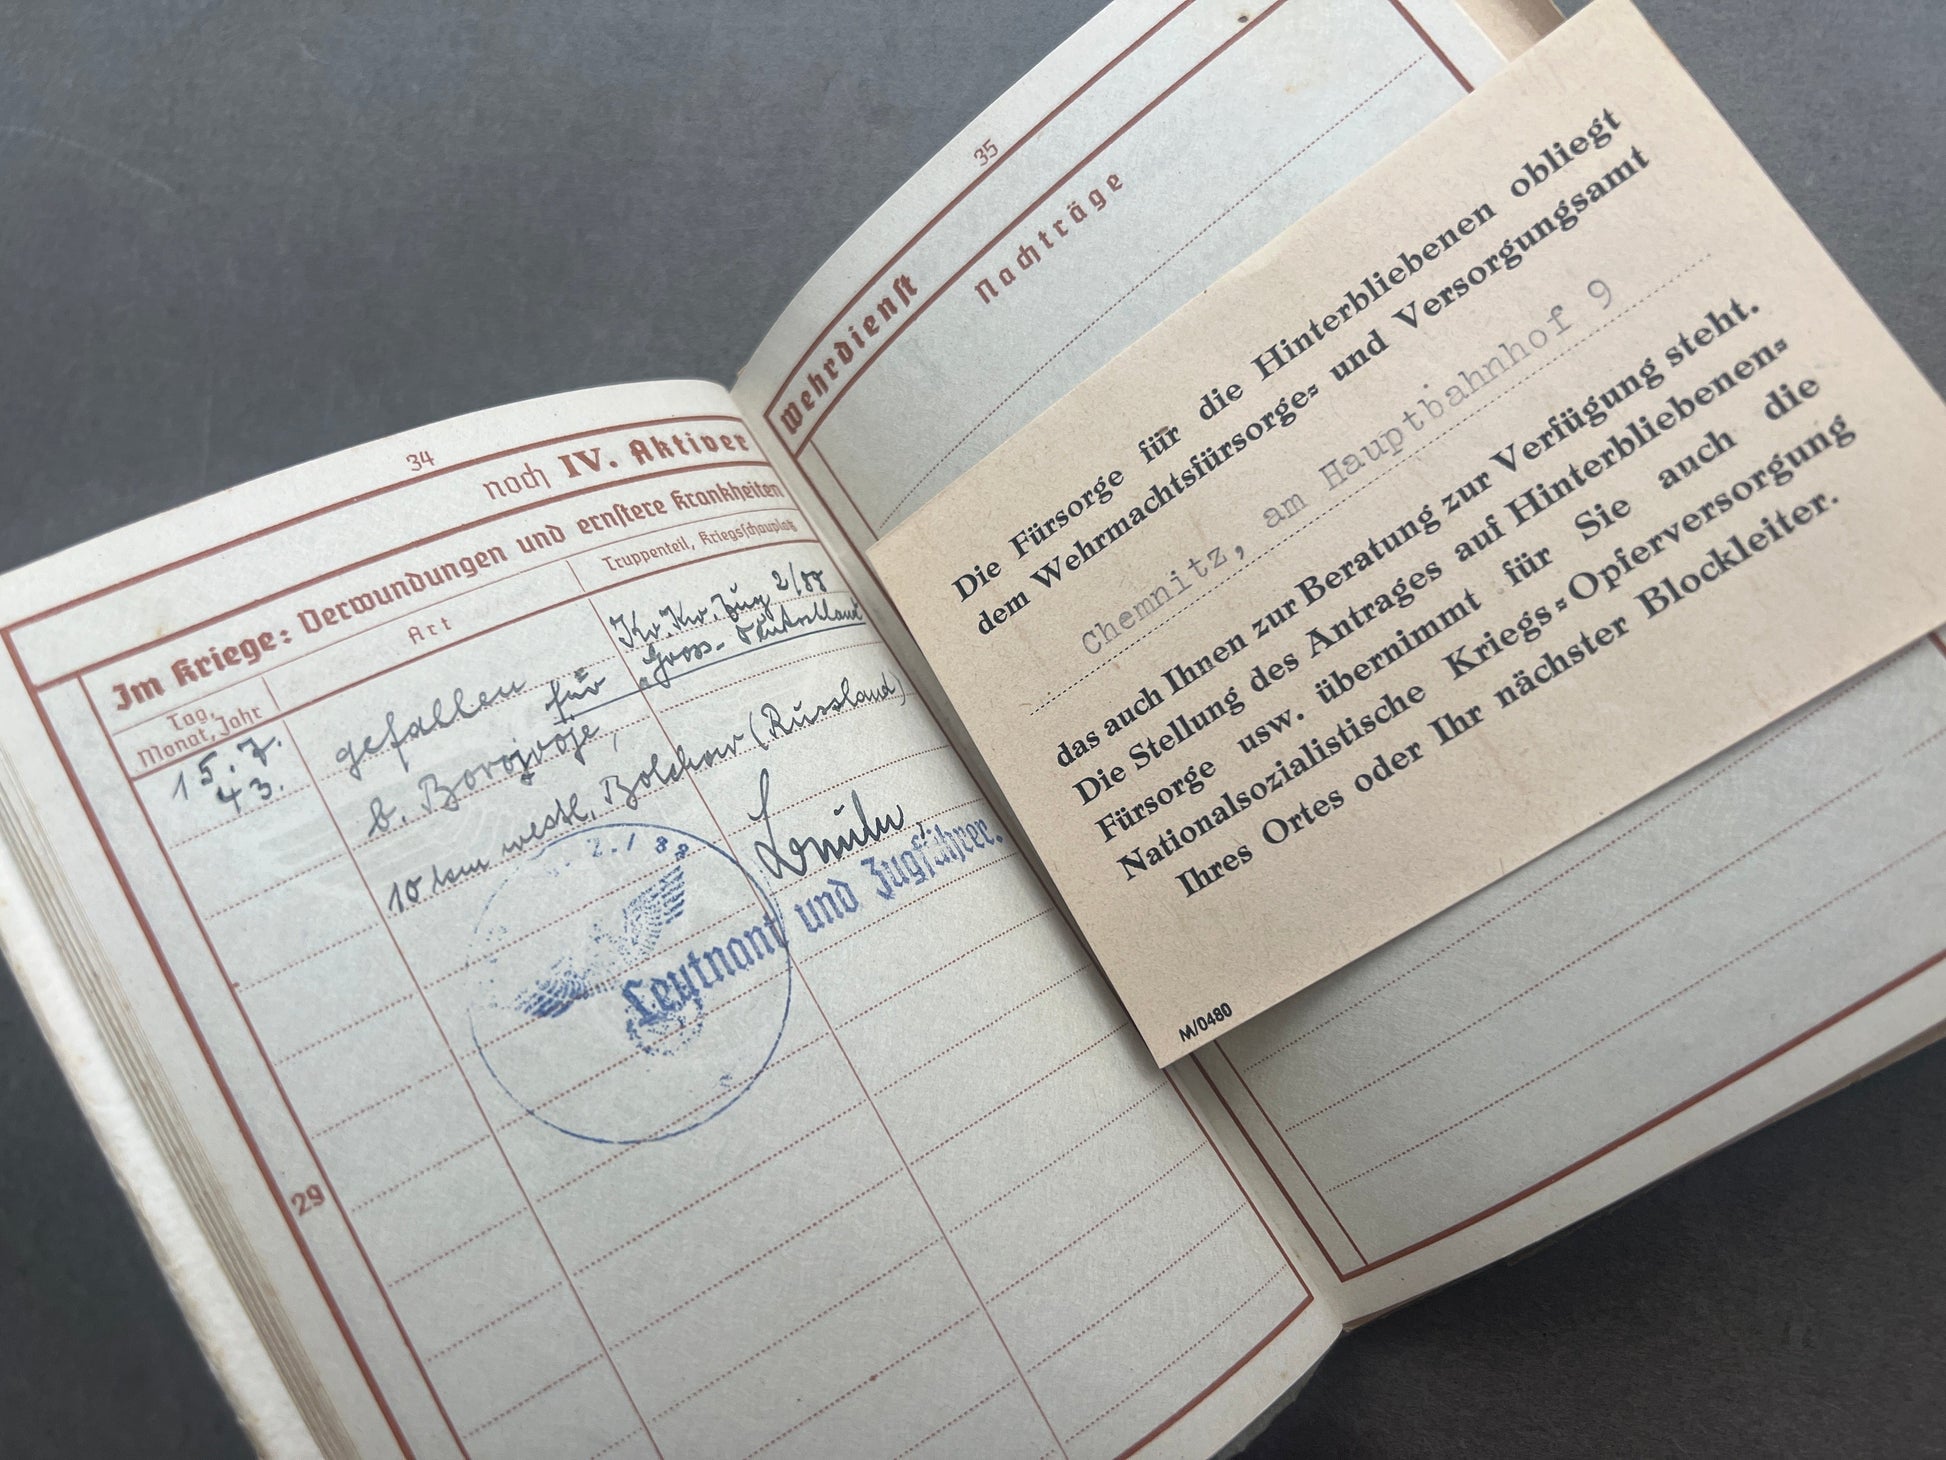 34
noch IV. Aktiver
Im Kriege: Verwundungen und ernstere Krankheiten
Tag, Monat, Jahr
Art
Truppenteil, Kriegsschauplatz
15. 7. 43.
gefallen für Gross-Deutschland
Kr. Kw. Zug 2/88
b. Borojroje,
10 km westl. Bolchow (Russland)
2./88
Leutnant und Zugführer.
29
35
Wehrdienst
Nachträge
Die Fürsorge für die Hinterbliebenen obliegt
dem Wehrmachtsfürsorge- und Versorgungsamt
Chemnitz, am Hauptbahnhof 9
das auch Ihnen zur Beratung zur Verfügung steht.
Die Stellung des Antrages auf Hinterbliebenen-
Fürsorge usw. übernimmt für Sie auch die
Nationalsozialistische Kriegs-Opferversorgung
Ihres Ortes oder Ihr nächster Blockleiter.
M/0480